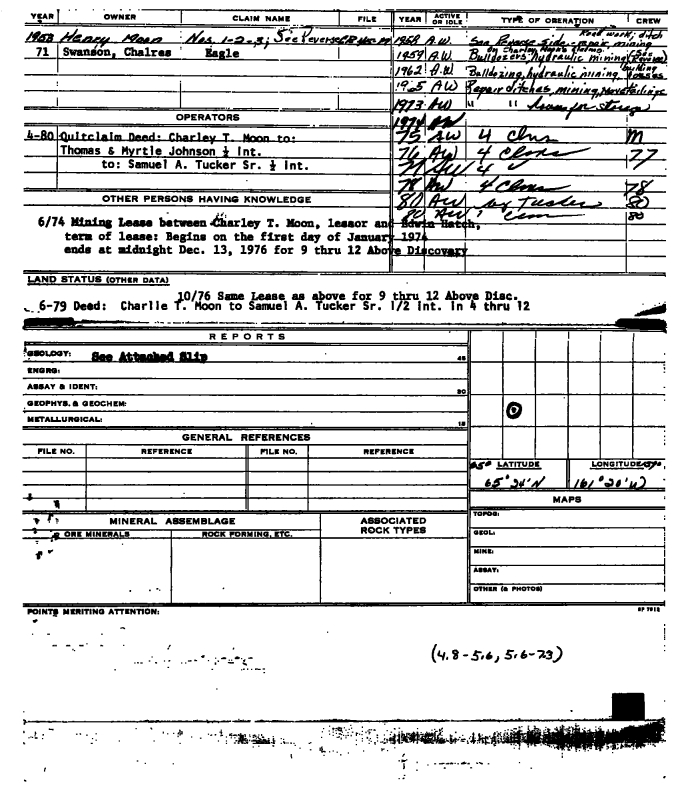 YEAR OWNER CLAIM NAME FILE YEAR ACTIVE OR IDLE TYPE OF OPERATION CREW
1958 Henry Moon Nos. 1-2-3; See Reverse 1958 A.W. See Reverse side - repair, mining Road work, ditch
71 Swanson, Chalres Eagle 1959 A.W. Bulldozers, hydraulic mining (See Reverse)
1962 A.W. Bulldozing, hydraulic mining, building
A.W. Repair ditches, mining, Move tailings
1973 AW " "
OPERATORS
1974 AW
4-80 Quitclaim Deed: Charley T. Moon to: 75 AW 4 Clms M
Thomas & Myrtle Johnson ½ Int. 76 AW 4 Clms 77
to: Samuel A. Tucker Sr. ½ Int. 77 AW 4
78 AW 4 Clms 78
OTHER PERSONS HAVING KNOWLEDGE 80 AW by Tucker 80
80 AW 1 80
6/74 Mining Lease between Charley T. Moon, lessor and Edwin Hatch,
term of lease: Begins on the first day of January 1974
ends at midnight Dec. 13, 1976 for 9 thru 12 Above Discovery
LAND STATUS (OTHER DATA)
10/76 Same Lease as above for 9 thru 12 Above Disc.
6-79 Dead: Charlie T. Moon to Samuel A. Tucker Sr. 1/2 int. in 4 thru 12
REPORTS
GEOLOGY: See Attached Slip 45
ENGRG:
ASSAY & IDENT: 30
GEOPHYS. & GEOCHEM:
METALLURGICAL: 15
GENERAL REFERENCES
FILE NO. REFERENCE FILE NO. REFERENCE
LATITUDE LONGITUDE
65°24'N 161°20'W
MAPS
MINERAL ASSEMBLAGE ASSOCIATED ROCK TYPES
ORE MINERALS ROCK FORMING, ETC.
TOPOG:
GEOL:
MINE:
ASSAY:
OTHER (& PHOTOS)
POINTS MERITING ATTENTION:
(4.8-5.6, 5.6-7.3)